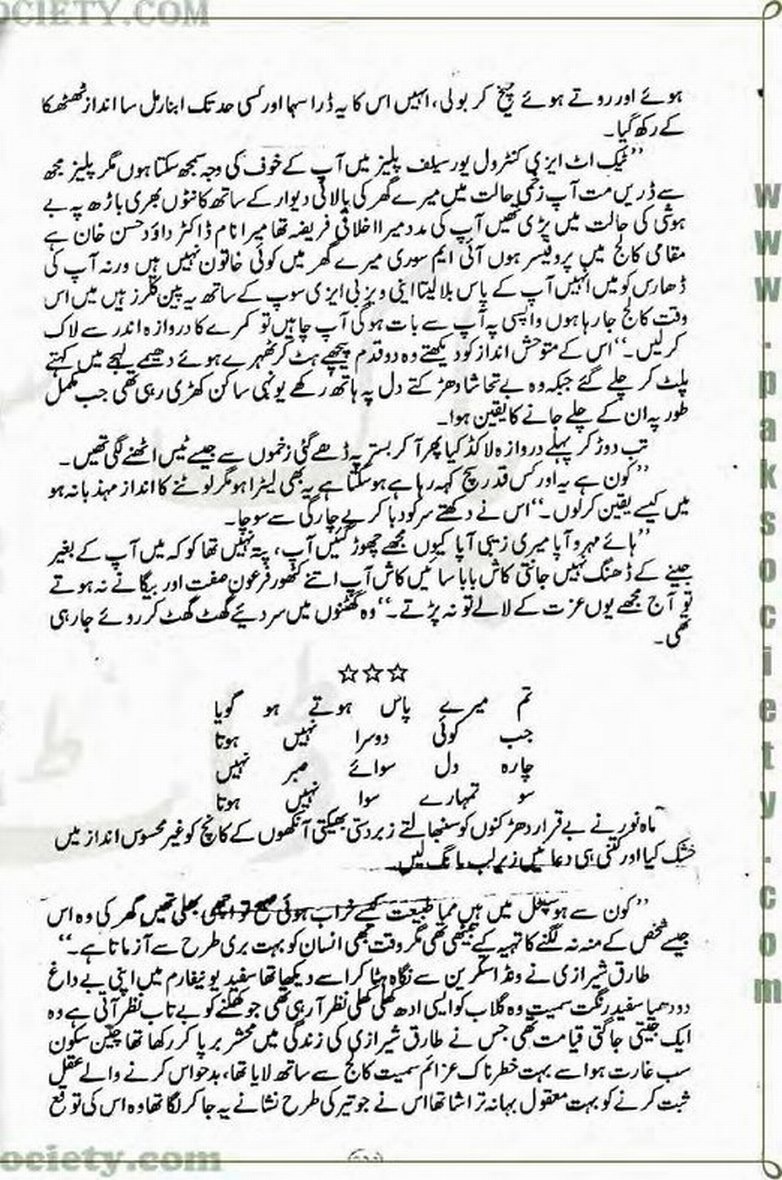 OCIETY.COM
ہوئے اور روتے ہوئے چیخ کر بولی، انہیں اس کا یہ ڈرا سہا اور کسی حد تک ابنارمل سا انداز ٹھٹھکا
کے رکھ گیا۔
’’ٹیک اٹ ایزی کنٹرول یور سیلف پلیز میں آپ کے خوف کی وجہ سمجھ سکتا ہوں مگر پلیز مجھ
سے ڈریں مت آپ زخمی حالت میں میرے گھر کی بالائی دیوار کے ساتھ کانٹوں بھری باڑھ پہ بے
ہوشی کی حالت میں پڑی تھیں آپ کی مدد میرا اخلاقی فریضہ تھا میرا نام ڈاکٹر داؤد حسن خان ہے
مقامی کالج میں پروفیسر ہوں آئی ایم سوری میرے گھر میں کوئی خاتون نہیں ہیں ورنہ آپ کی
ڈھارس کو میں انہیں آپ کے پاس بلا لیتا اپنی ویز بی ایزی سوپ کے ساتھ یہ پین کلرز ہیں میں اس
وقت کالج جا رہا ہوں واپسی پہ آپ سے بات ہو گی آپ چاہیں تو کمرے کا دروازہ اندر سے لاک
کر لیں۔‘‘ اس کے متوحش انداز کو دیکھتے وہ دو قدم پیچھے ہٹ کر ٹھہرے ہوئے دھیمے لہجے میں کہتے
پلٹ کر چلے گئے جبکہ وہ بے تحاشا دھڑکتے دل پہ ہاتھ رکھے یونہی ساکن کھڑی رہی تھی جب مکمل
طور پہ ان کے چلے جانے کا یقین ہوا۔
تب دوڑ کر پہلے دروازہ لاکڈ کیا پھر آ کر بستر پہ ڈھے گئی زخموں سے جیسے ٹیس اٹھنے لگی تھیں۔
’’کون ہے یہ اور کس قدر سچ کہہ رہا ہے ہو سکتا ہے یہ بھی لیٹرا ہو مگر لوٹنے کا انداز مہذبانہ ہو
میں کیسے یقین کر لوں۔‘‘ اس نے دکھتے سر کو دبا کر بے چارگی سے سوچا۔
’’ہائے مہرو آپا میری زیبی آپا کیوں مجھے چھوڑ گئیں آپ، پتہ نہیں تھا کو کہ میں آپ کے بغیر
جینے کے ڈھنگ نہیں جانتی کاش بابا سائیں کاش آپ اتنے کٹھور فرعون صفت اور بیگانے نہ ہوتے
تو آج مجھے یوں عزت کے لالے تو نہ پڑتے۔‘‘ وہ گھٹنوں میں سر دیئے گھٹ گھٹ کر روئے جا رہی
تھی۔
☆☆☆
تم میرے پاس ہوتے ہو گویا
جب کوئی دوسرا نہیں ہوتا
چارہ دل سوائے صبر نہیں
سو تمہارے سوا نہیں ہوتا
ماہ نور نے بے قرار دھڑکنوں کو سنبھالتے زبردستی بھیگتی آنکھوں کے کانچ کو غیر محسوس انداز میں
خشک کیا اور کتنی ہی دعائیں زیر لب مانگ لیں۔
’’کون سے ہوسپٹل میں ہیں مما طبیعت کیسے خراب ہوئی صبح تو اچھی بھلی تھیں گھر کی وہ اس
جیسے شخص کے منہ نہ لگنے کا تہیہ کیے بیٹھی تھی مگر وقت بھی انسان کو بہت بری طرح سے آزماتا ہے۔‘‘
طارق شیرازی نے ونڈ اسکرین سے نگاہ ہٹا کر اسے دیکھا تھا سفید یونیفارم میں اپنی بے داغ
دودھیا سفید رنگت سمیت وہ گلاب کو ایسی ادھ کھلی کھلی نظر آ رہی تھی جو کھلنے کو بے تاب نظر آتی ہے وہ
ایک جیتی جاگتی قیامت تھی جس نے طارق شیرازی کی زندگی میں محشر برپا کر رکھا تھا چین سکون
سب غارت ہوا اسے بہت خطرناک عزائم سمیت کالج سے ساتھ لایا تھا، بدحواس کرنے والے عقل
ثبت کرنے کو بہت معقول بہانہ تراشا تھا اس نے جو تیر کی طرح نشانے پہ جا کر لگا تھا وہ اس کی توقع
www.paksociety.com
ociety.com